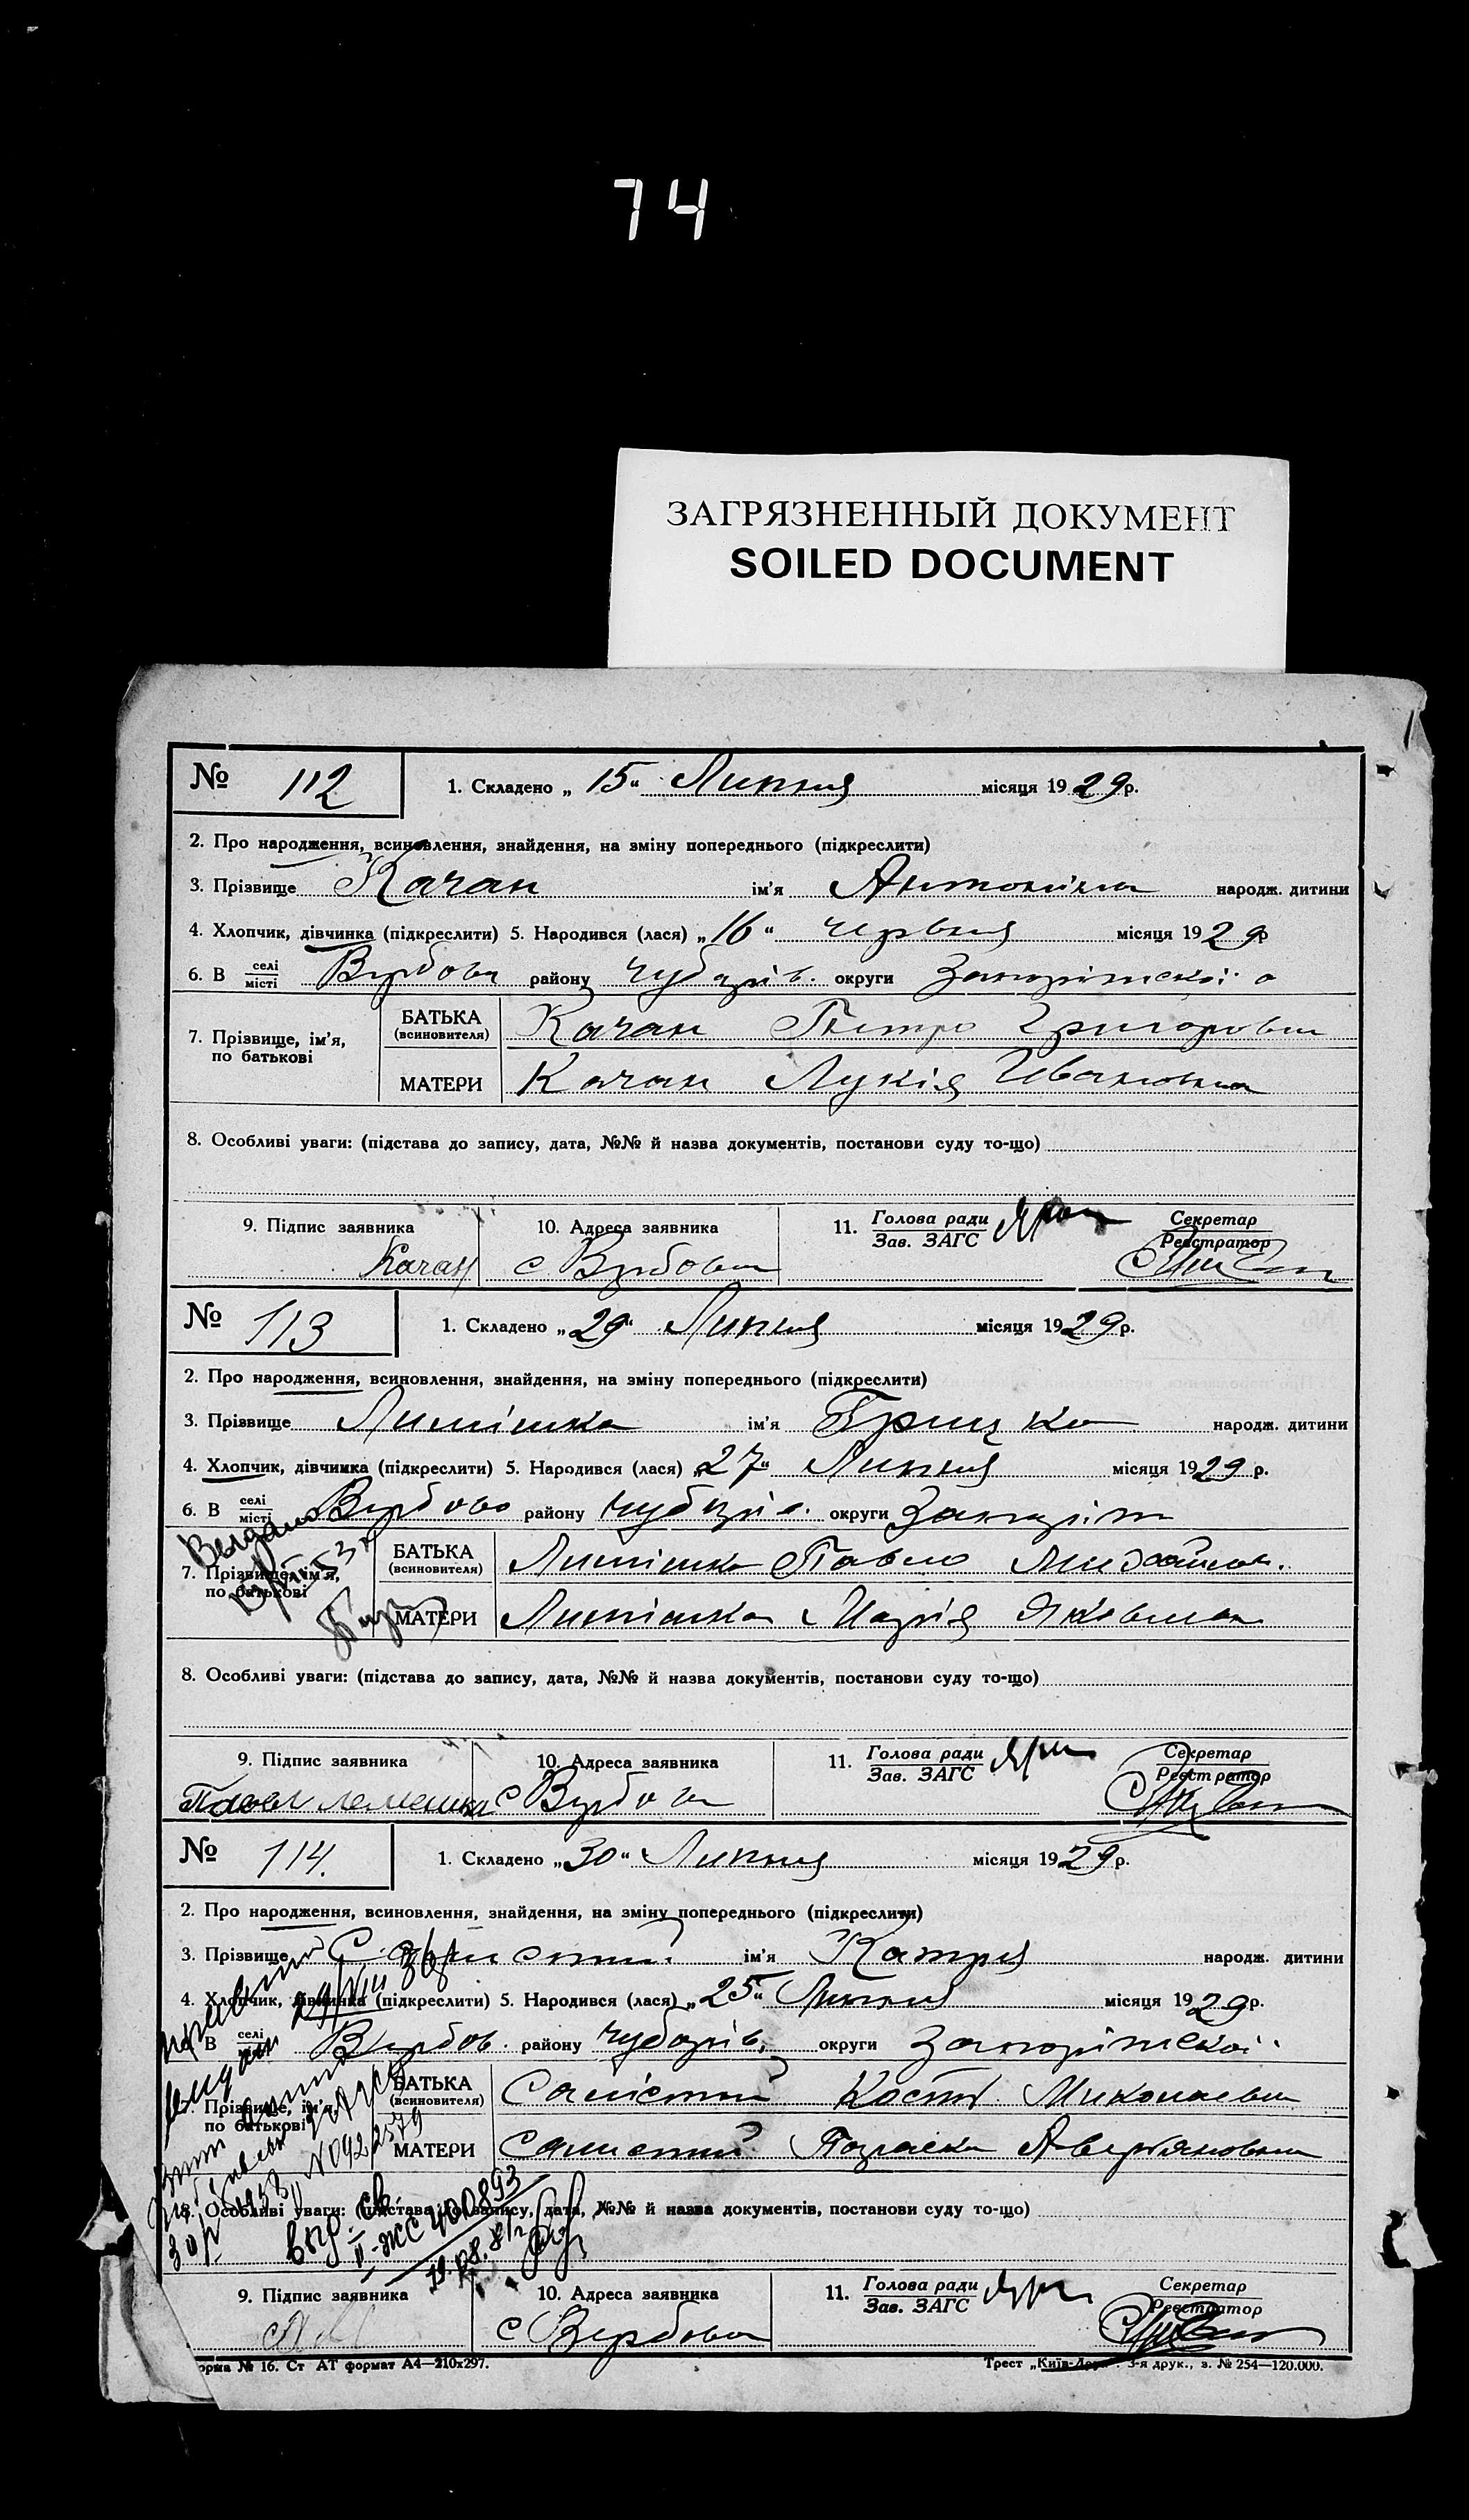 74
ЗАГРЯЗНЕННЫЙ ДОКУМЕНТ
SOILED DOCUMENT
№ 112 1. Складено „15“ Липня місяця 1929 р.
2. Про народження, всиновлення, знайдення, на зміну попереднього (підкреслити)
3. Прізвище Качан ім'я Антоніна народж. дитини
4. Хлопчик, дівчинка (підкреслити) 5. Народився (лася) „16“ червня місяця 1929 р
6. В селі місті Вербова району Чубарів. округи Запоріжської о
7. Прізвище, ім'я, по батькові
БАТЬКА (всиновителя) Качан Петро Григорович
МАТЕРИ Качан Лукія Ивановна
8. Особливі уваги: (підстава до запису, дата, №№ й назва документів, постанови суду то-що)
9. Підпис заявника 10. Адреса заявника 11. Голова ради Зав. ЗАГС Секретар Реєстратор
Качан с Вербова
№ 113 1. Складено „29“ Липня місяця 1929 р.
2. Про народження, всиновлення, знайдення, на зміну попереднього (підкреслити)
3. Прізвище Лимішка ім'я Грицко народж. дитини
4. Хлопчик, дівчинка (підкреслити) 5. Народився (лася) „27“ Липня місяця 1929 р.
6. В селі місті Вербово району Чубарів. округи Запоріж
7. Прізвище, ім'я, по батькові
БАТЬКА (всиновителя) Лимішка Павло Михайлов.
МАТЕРИ Лимішка Марія Яковлевна
8. Особливі уваги: (підстава до запису, дата, №№ й назва документів, постанови суду то-що)
9. Підпис заявника 10. Адреса заявника 11. Голова ради Зав. ЗАГС Секретар Реєстратор
Павел Лемешка с Вербова
№ 114. 1. Складено „30“ Липня місяця 1929 р.
2. Про народження, всиновлення, знайдення, на зміну попереднього (підкреслити)
3. Прізвище ім'я Катря народж. дитини
4. Хлопчик, дівчинка (підкреслити) 5. Народився (лася) „25“ Липня місяця 1929 р.
В селі Вербов. району Чубарів. округи Запоріжської
7. Прізвище, ім'я, по батькові
БАТЬКА (всиновителя) Костя Миколаевич
МАТЕРИ Аверьяновна
8. Особливі уваги: (підстава до запису, дата, №№ й назва документів, постанови суду то-що)
II-ЖС 400893
9. Підпис заявника 10. Адреса заявника 11. Голова ради Зав. ЗАГС Секретар Реєстратор
с Вербова
орма № 16. Ст АТ формат А4—210х297. Трест „Київ-Друк“. 3-я друк., з. № 254—120.000.